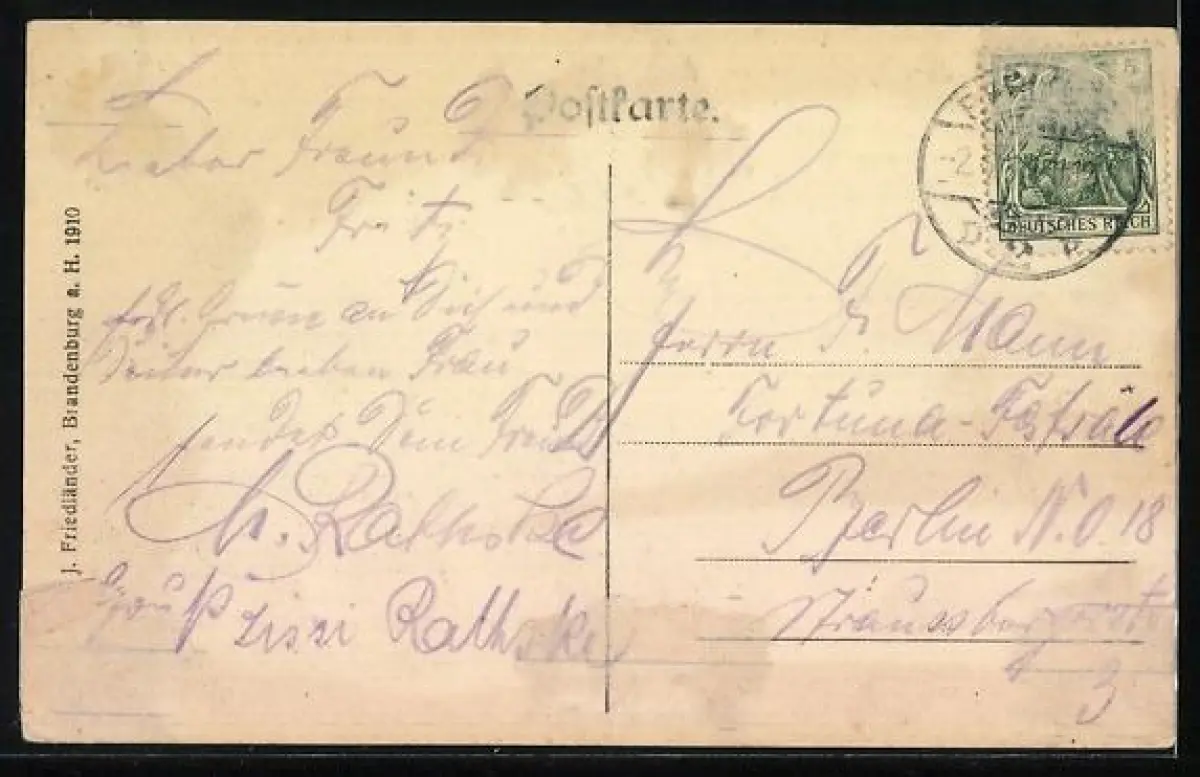 Postkarte.
Lieber Freund
Fritz
Grüsse an Dich und
Deiner lieben Frau
sendet Dein Freund
Rathske
Gruß Lissi Rathske
J. Friedländer, Brandenburg a. H. 1910
5
DEUTSCHES REICH
Herrn Fr. Mann
Fortuna-
Berlin N.O. 18
Strausbergerstr.
3